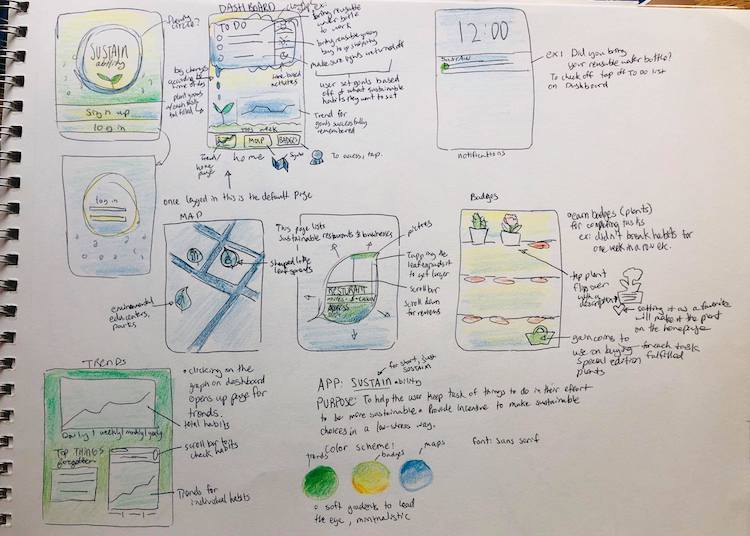 SUSTAIN
ability
Sign up
log in
log in
once logged in this is the default page
DASHBOARD
TO DO
ex:
bring reusable
water bottle
to work
bring reusable grocery
bag to go shopping
make sure lights are turned off
user set goals based
off of what sustainable
habits they want to set
time based
activities
Trend for
goals successfully
remembered
this week
MAP
BADGES
Trends/
home
page
home
To access map.
12:00
Sustain
notifications
ex: Did you bring
your reusable water bottle?
To check off tap off To do list
on Dashboard
MAP
Shaped like
leaf sprouts
environmental
edu centers,
parks
This page lists
sustainable restaurants & businesses
RESTURANT
pictures
Tapping the
leaf expands it
to get larger
scroll bar
Scroll down
for reviews
Badges
earn badges (plants)
for completing tasks
ex: didn't break habits for
one week in a row etc.
tap plant
flips over
with a
description
setting it as a favorite
will make it the plant
on the homepage
gain coins to
use on buying for each task
special edition fulfilled
plants
TRENDS
Daily | weekly | monthly | yearly
TOP THINGS
forgotten
• clicking on the
graph on dashboard
opens up page for
trends.
total habits
scroll bar to
check habits
Trends for
individual habits
for short, just
sustain
APP: SUSTAINability
PURPOSE: To help the user keep task of things to do in their effort
to be more sustainable. Provide incentive to make sustainable
choices in a low-stress way.
Color scheme:
trends
badges
maps
font: sans serif
soft gradients to lead
the eye, minimalistic